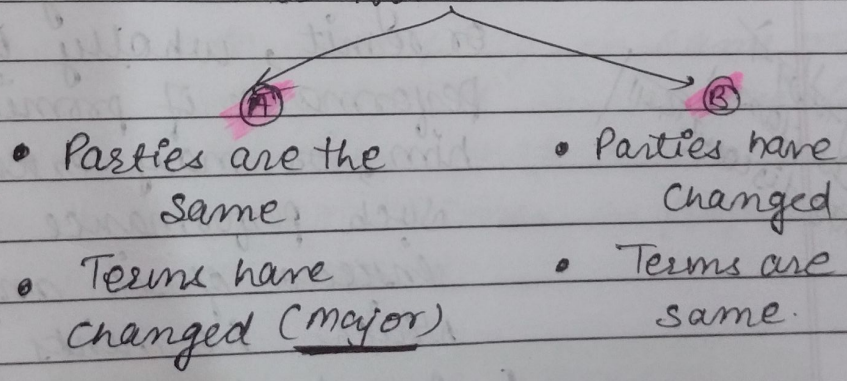 A
• Parties are the
same.
• Terms have
changed (major)
B
• Parties have
Changed
• Terms are
same.